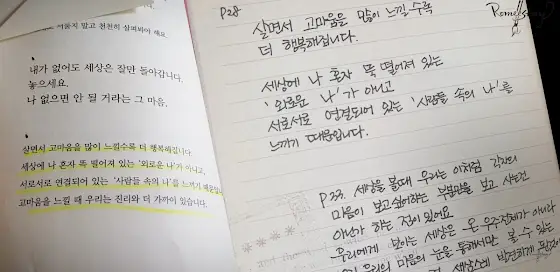 여쭙지 말고 천천히 살펴봐야 해요.
내가 없어도 세상은 잘만 돌아갑니다.
놓으세요.
나 없으면 안 될 거라는 그 마음.
살면서 고마움을 많이 느낄수록 더 행복해집니다.
세상에 나 혼자 뚝 떨어져 있는 '외로운 나'가 아니고,
서로서로 연결되어 있는 '사람들 속의 나'를 느끼기 때문입니다.
고마움을 느낄 때 우리는 진리와 더 가까이 있습니다.
P28
살면서 고마움을 많이 느낄수록
더 행복해집니다.
세상에 나 혼자 뚝 떨어져 있는
'외로운 나'가 아니고
서로서로 연결되어 있는 '사람들 속의 나'를
느끼기 때문입니다.
P33. 세상을 볼때 우리는 이처럼 각자의
마음이 보고싶어하는 부분만을 보고 사는건
아닌가 하는 점이 있어요
우리에게 보이는 세상은 온 우주전체가 아니라
우리의 마음의 눈을 통해서만 볼 수 있는